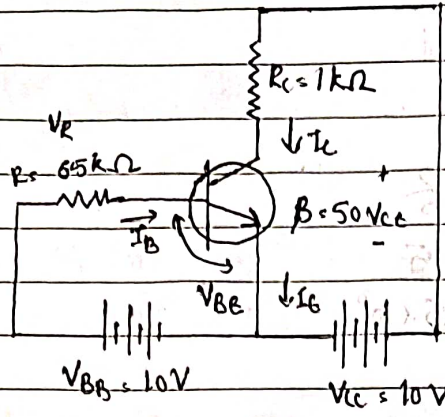 RC = 1kΩ
VR
↓ IC
R = 65kΩ
+
IB
β = 50 VCE
-
VBE
↓ IE
VBB = 10V
VCC = 10V